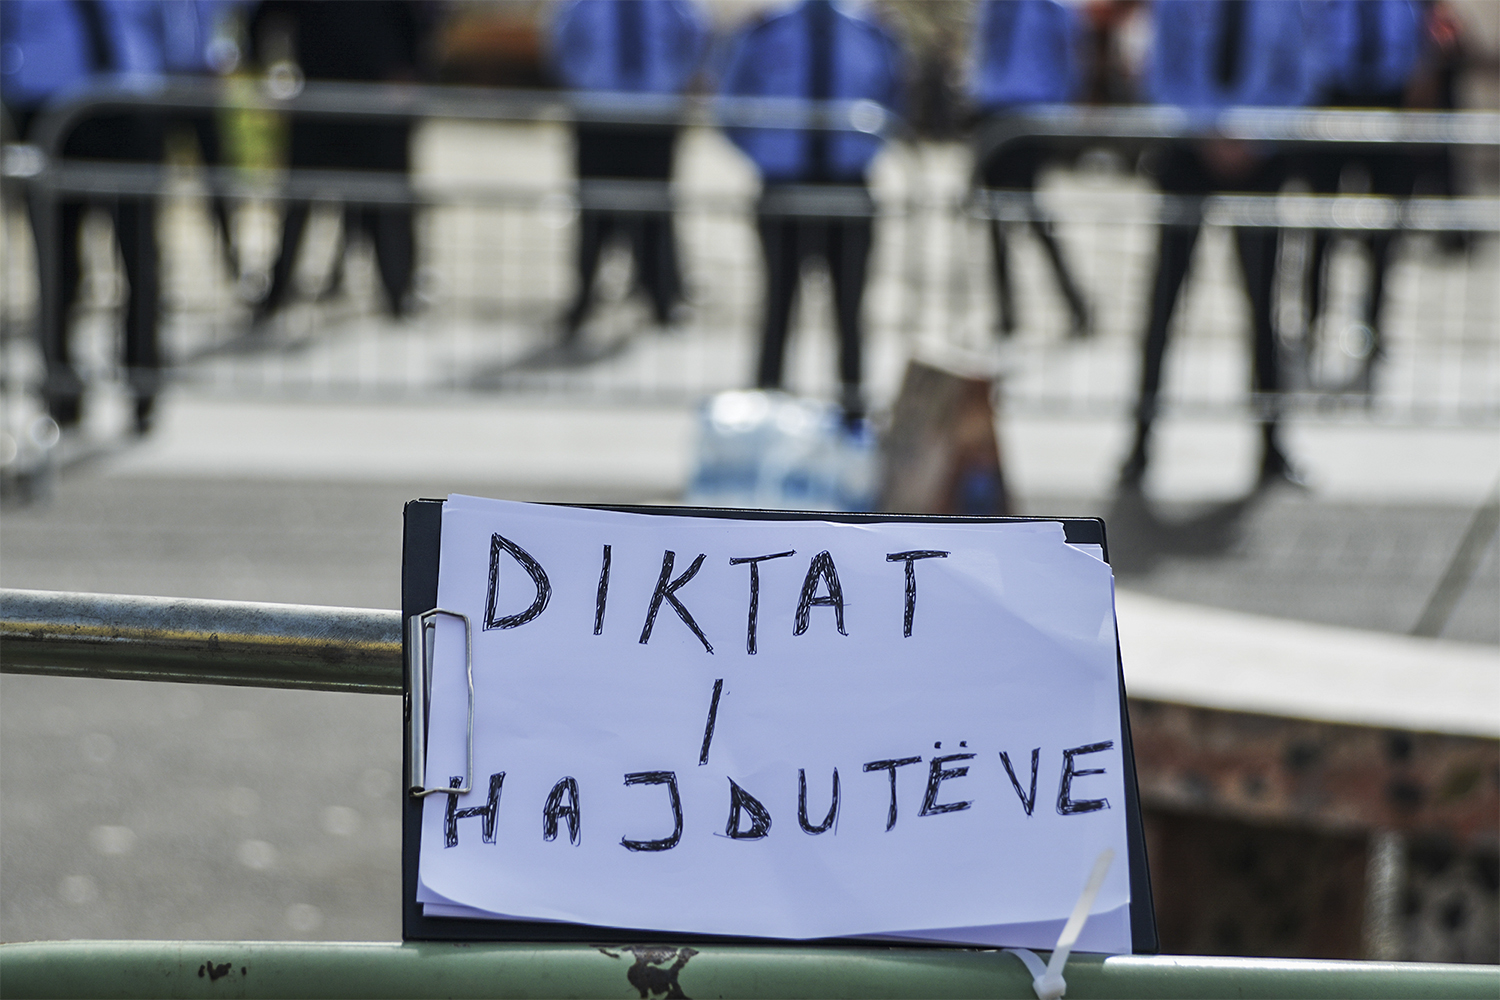 DIKTAT
I
HAJDUTËVE